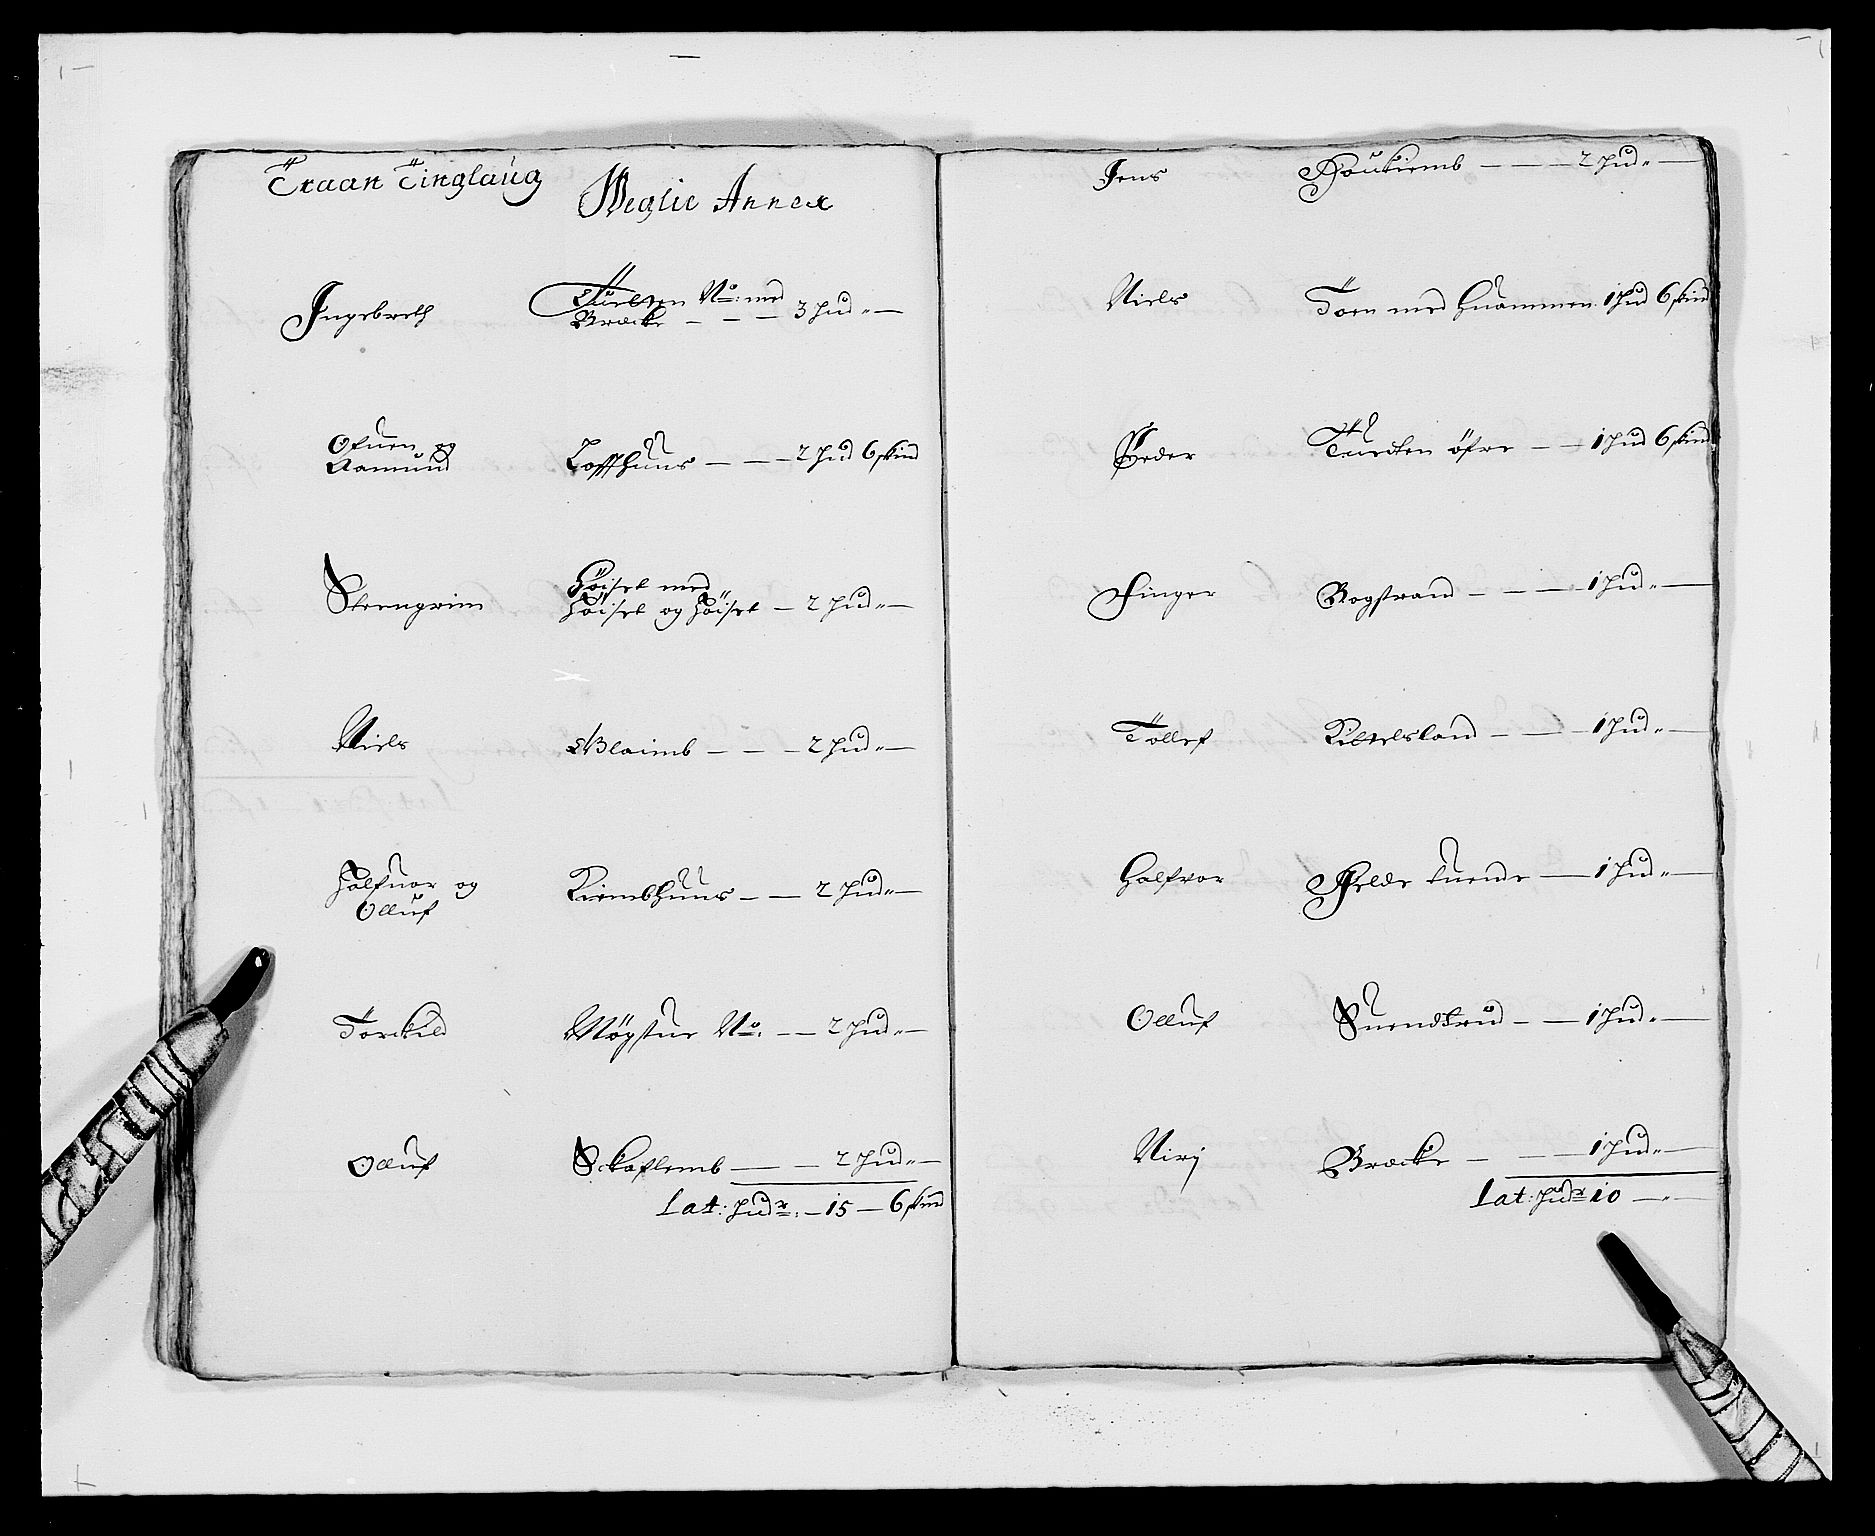 Traan Tinglaug
Weglie Annex
Ingebreth
Tuetten No: med
Bræcke — — — 3 hud „ —
Ofuen og
Aamund Loffthuus — — — 2 hud 6 skind
Steengrim Høiset med
Høiset og Høiset — 2 hud „ —
Niels Blaimb — — — 2 hud „ —
Halfuor og
Olluf Kiembhuus — — 2 hud „ —
Torckild Mögstue No: — — 2 hud „ —
Olluf Skaflemb — — 2 hud „ —
Lat: hudr: — 15 — 6 skind
Jens — — — 2 hud „ —
Niels Toen med Huammen 1 hud 6 skind
Peder Tuedten öfre — — 1 hud 6 skind
Finger Rogstrand — — — 1 hud „ —
Tollef Kittelsland — — — 1 hud „ —
Halfvor Jelde tuende — 1 hud „ —
Olluf Suendsrud — — 1 hud „ —
Niri Bræcke — — — 1 hud „ —
Lat: hudr 10 — „ —